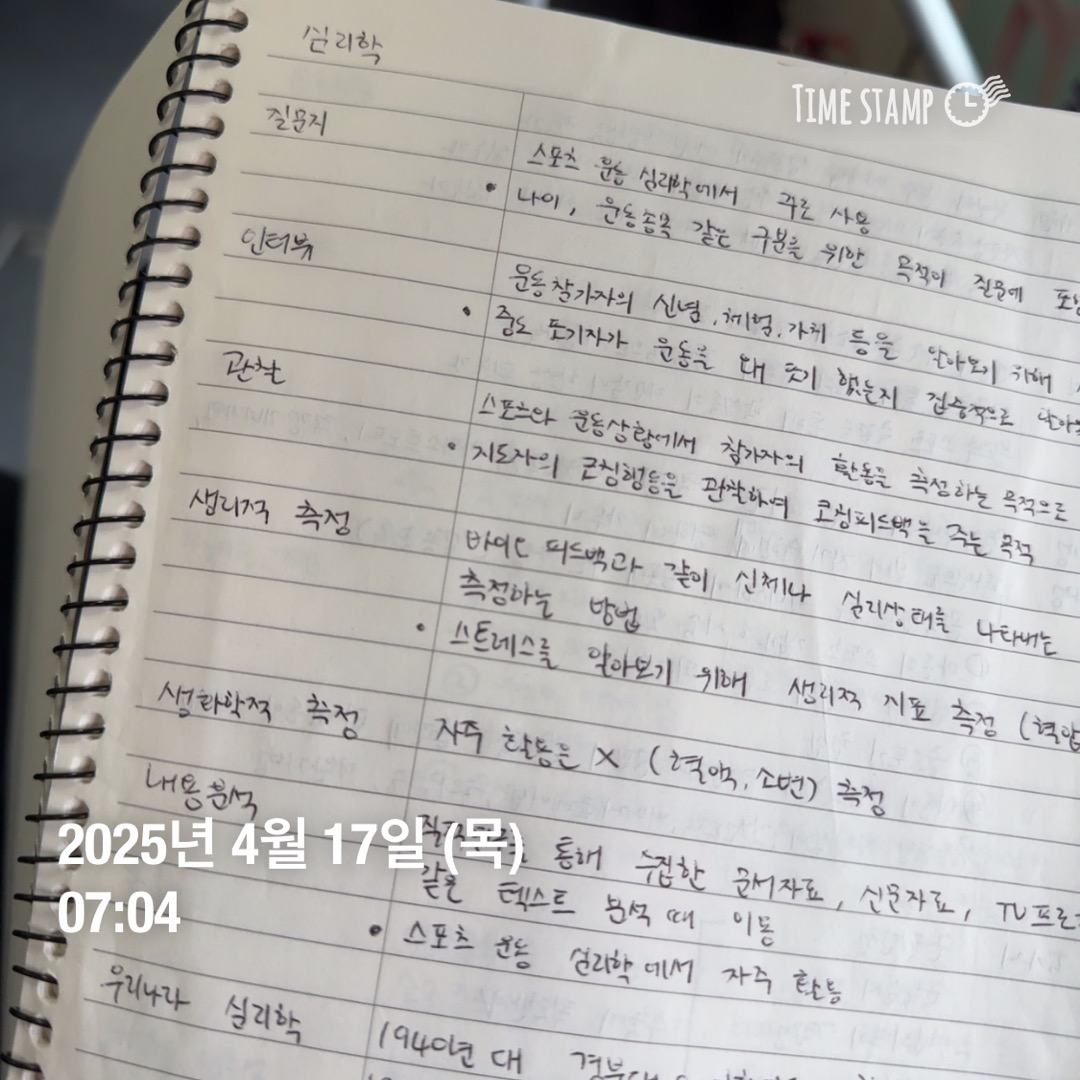 심리학
TIME STAMP
질문지
스포츠 운동 심리학에서 주로 사용
• 나이, 운동종목 같은 구분을 위한 목적이 질문에
인터뷰
운동참가자의 신념, 체험, 가치 등을 알아보기 위해
• 중도 포기자가 운동을 왜 포기 했는지 집중적으로
관찰
스포츠와 운동상황에서 참가자의 활동을 측정하는 목적으로
• 지도자의 코칭행동을 관찰하여 코칭피드백을 주는 목적
생리적 측정
바이오 피드백과 같이 신체나 심리상태를 나타내는
측정하는 방법
• 스트레스를 알아보기 위해 생리적 지표 측정 (혈압
생화학적 측정
자주 활용은 X (혈액, 소변) 측정
내용분석
통해 수집한 문서자료, 신문자료, TV프로
같은 텍스트 분석 때 이용
• 스포츠 운동 심리학에서 자주 활용
2025년 4월 17일 (목)
07:04
우리나라 심리학
1940년대